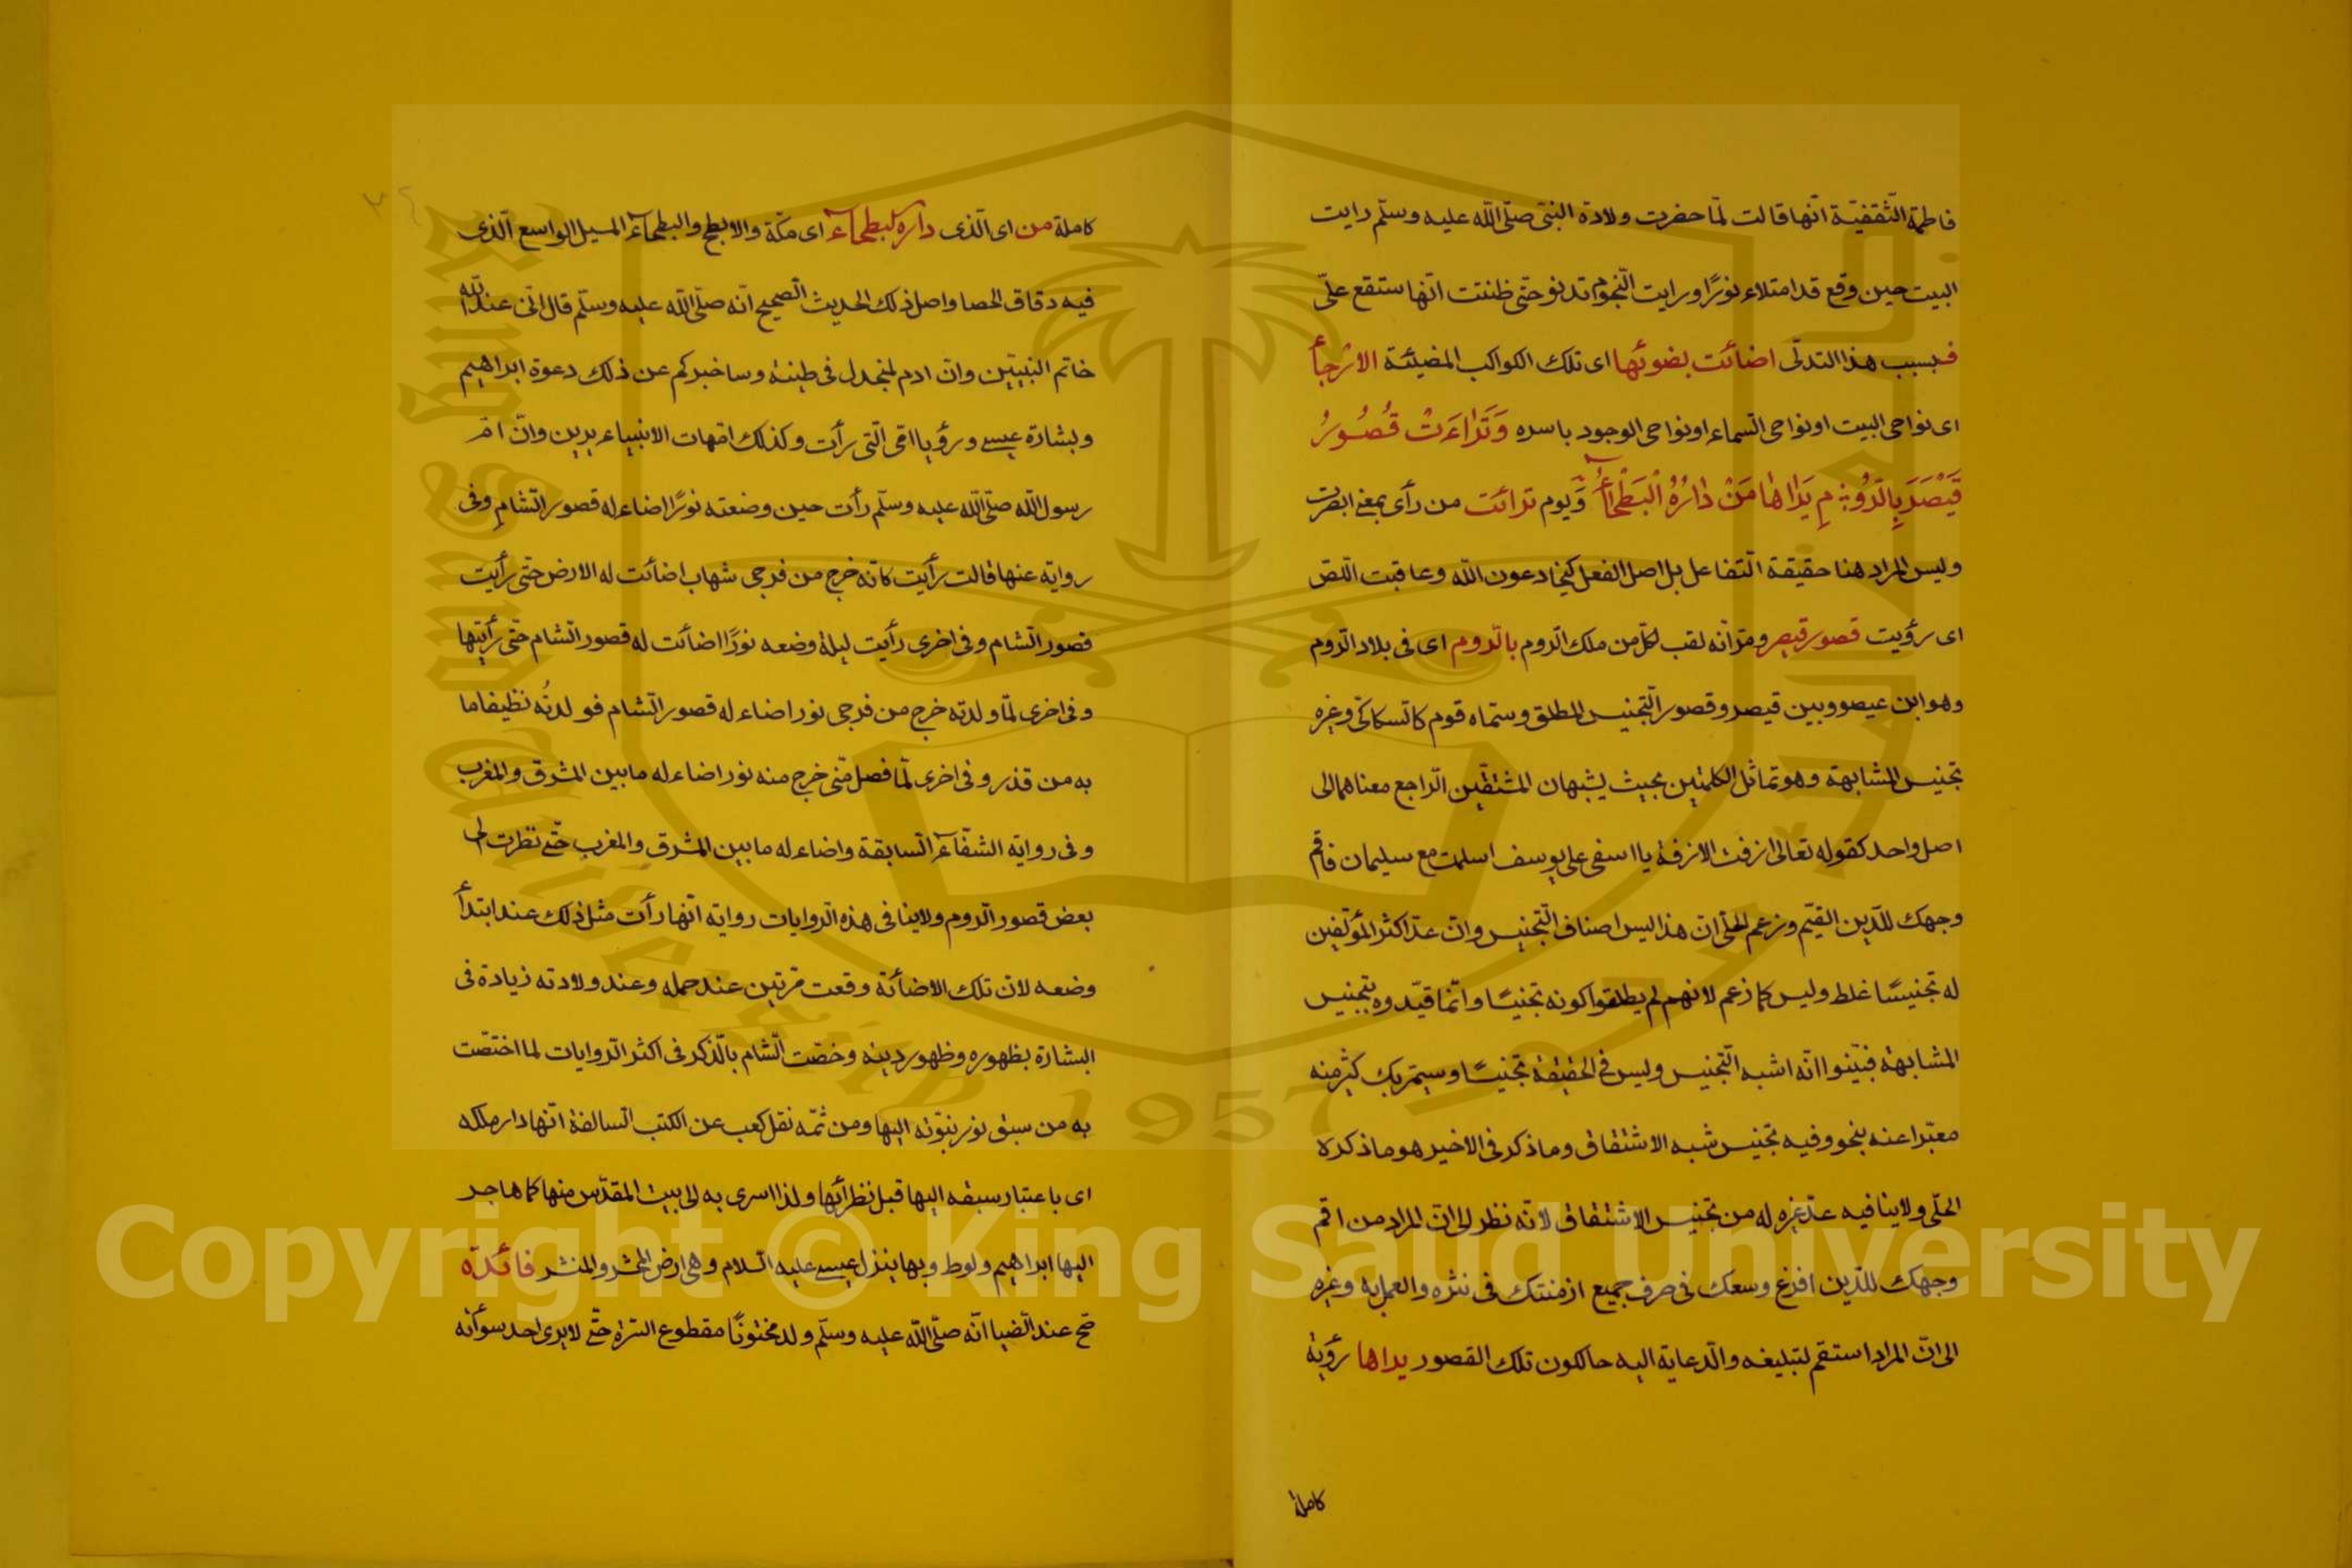 فاطمة الثقفيّة انّها قالت لمّا حضرت ولادة النبىّ صلّى اللّه عليه وسلّم رايت
البيت حين وقع قد امتلاء نورًا ورايت النّجوم تدنو حتى ظننت انّها ستقع علىّ
فبسبب هذا التدلّى اضائت بضوئها اى تلك الكواكب المضيئة الارْجأ
اى نواحى البيت او نواحى السّماء او نواحى الوجود باسره وَتَرَاءَتْ قُصُورُ
قَيْصَرَ بِالرُّومِ يَرَاهَا مَنْ دَارُهُ الْبَطْحَأُ وَيوم ترائت من رأى بمعنى ابصرت
وليس المراد هنا حقيقة التّفاعل بل اصل الفعل كيخادعون اللّه وعاقبت اللّصّ
اى رؤيت قصور قيصر ومرّ انّه لقب لكلّ من ملك الرّوم بالرّوم اى فى بلاد الرّوم
وهو ابن عيصو وبين قيصر وقصور التّجنيس المطلق وسمّاه قوم كالسّكاكىّ وغيره
تجنيس المشابهة وهو تماثل الكلمتين بحيث يشبهان المشتقّين الرّاجع معناهما الى
اصل واحد كقوله تعالى ازفت الازفة يا اسفى على يوسف اسلمت مع سليمان فاقم
وجهك للدّين القيّم وزعم الحلّى انّ هذا ليس اصناف التّجنيس وانّ عدّ اكثر المؤلّفين
له تجنيسًا غلط وليس كما زعم لانهم لم يطلقوا كونه تجنيسًا وانّما قيّدوه بتجنيس
المشابهة فبيّنوا انّه اشبه التّجنيس وليس فى الحقيقة تجنيسًا وسيمرّ بك كثير منه
معبّرا عنه بنحو وفيه تجنيس شبه الاشتقاق وما ذكر فى الاخير هو ما ذكره
الحلّى ولا ينافيه عدّ غيره له من تجنيس الاشتقاق لانّه نظر الى انّ المراد من اقم
وجهك للدّين افرغ وسعك فى صرف جميع ازمنتك فى نشره والعمل به وغيره
الى انّ المراد استقم لتبليغه والدّعاية اليه حال كون تلك القصور يراها رؤية
كاملة
كاملة من اى الّذى داره البطحاء اى مكّة والابطح والبطحاء المسيل الواسع الّذى
فيه دقاق الحصا واصل ذلك الحديث الصّحيح انّه صلّى اللّه عليه وسلّم قال انّى عند اللّه
خاتم النبيّين وانّ ادم لمنجدل فى طينته وساخبركم عن ذلك دعوة ابراهيم
وبشارة عيسى ورؤيا امّى الّتى رأت وكذلك امّهات الانبياء يرين وانّ امّ
رسول اللّه صلّى اللّه عليه وسلّم رأت حين وضعته نورًا اضاء له قصور الشّام وفى
رواية عنها قالت رأيت كانّه خرج من فرجى شهاب اضائت له الارض حتّى رأيت
قصور الشّام وفى اخرى رأيت ليلة وضعه نورًا اضائت له قصور الشّام حتّى رأيتها
وفى اخرى لمّا ولدته خرج من فرجى نور اضاء له قصور الشّام فولدتُه نظيفا ما
به من قذر وفى اخرى لمّا فصل منّى خرج منه نور اضاء له ما بين المشرق والمغرب
وفى رواية الشفّاء السّابقة واضاء له ما بين المشرق والمغرب حتّى نظرت الى
بعض قصور الرّوم ولا ينافى هذه الرّوايات رواية انّها رأت مثل ذلك عند ابتدأ
وضعه لانّ تلك الاضائة وقعت مرّتين عند حمله وعند ولادته زيادة فى
البشارة بظهوره وظهور دينه وخصّت الشّام بالذّكر فى اكثر الرّوايات لما اختصّت
به من سبق نور نبوّته اليها ومن ثمّه نقل كعب عن الكتب السّالفة انّها دار ملكه
اى باعتبار سبقه اليها قبل نظرائها ولذا اسرى به الى بيت المقدّس منها كما هاجر
اليها ابراهيم ولوط وبها ينزل عيسى عليه السّلام وهى ارض المحشر والمنشر فائدة
صحّ عند الضّيا انّه صلّى اللّه عليه وسلّم ولد مختونًا مقطوع السّرّة حتّى لا يرى احد سوأته
King Saud University
1957
Copyright © King Saud University